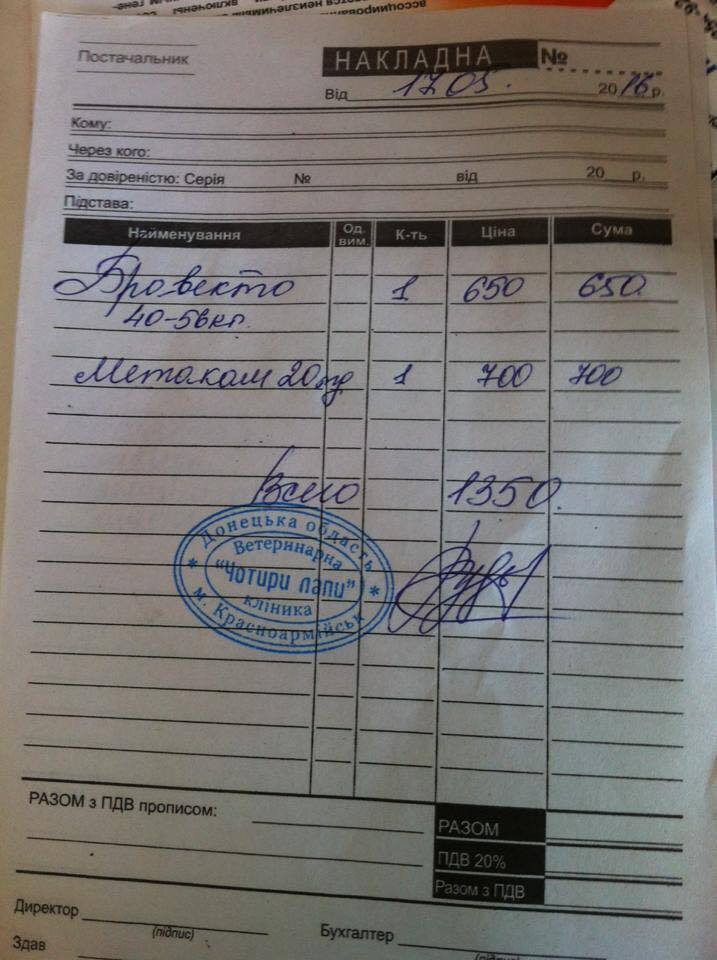 Постачальник
НАКЛАДНА №
Від 17.05. 2016 р.
Кому:
Через кого:
За довіреністю: Серія № від 20 р.
Підстава:
Найменування Од. вим. К-ть Ціна Сума
Бровекто 1 650 650.
40-56кг.
Метакам 20 1 700 700
Всего 1350.
Донецька область
Ветеринарна
"Чотири лапи"
клініка
м. Красноармійськ
РАЗОМ з ПДВ прописом:
РАЗОМ
ПДВ 20%
Разом з ПДВ
Директор
(підпис)
Бухгалтер
(підпис)
Здав